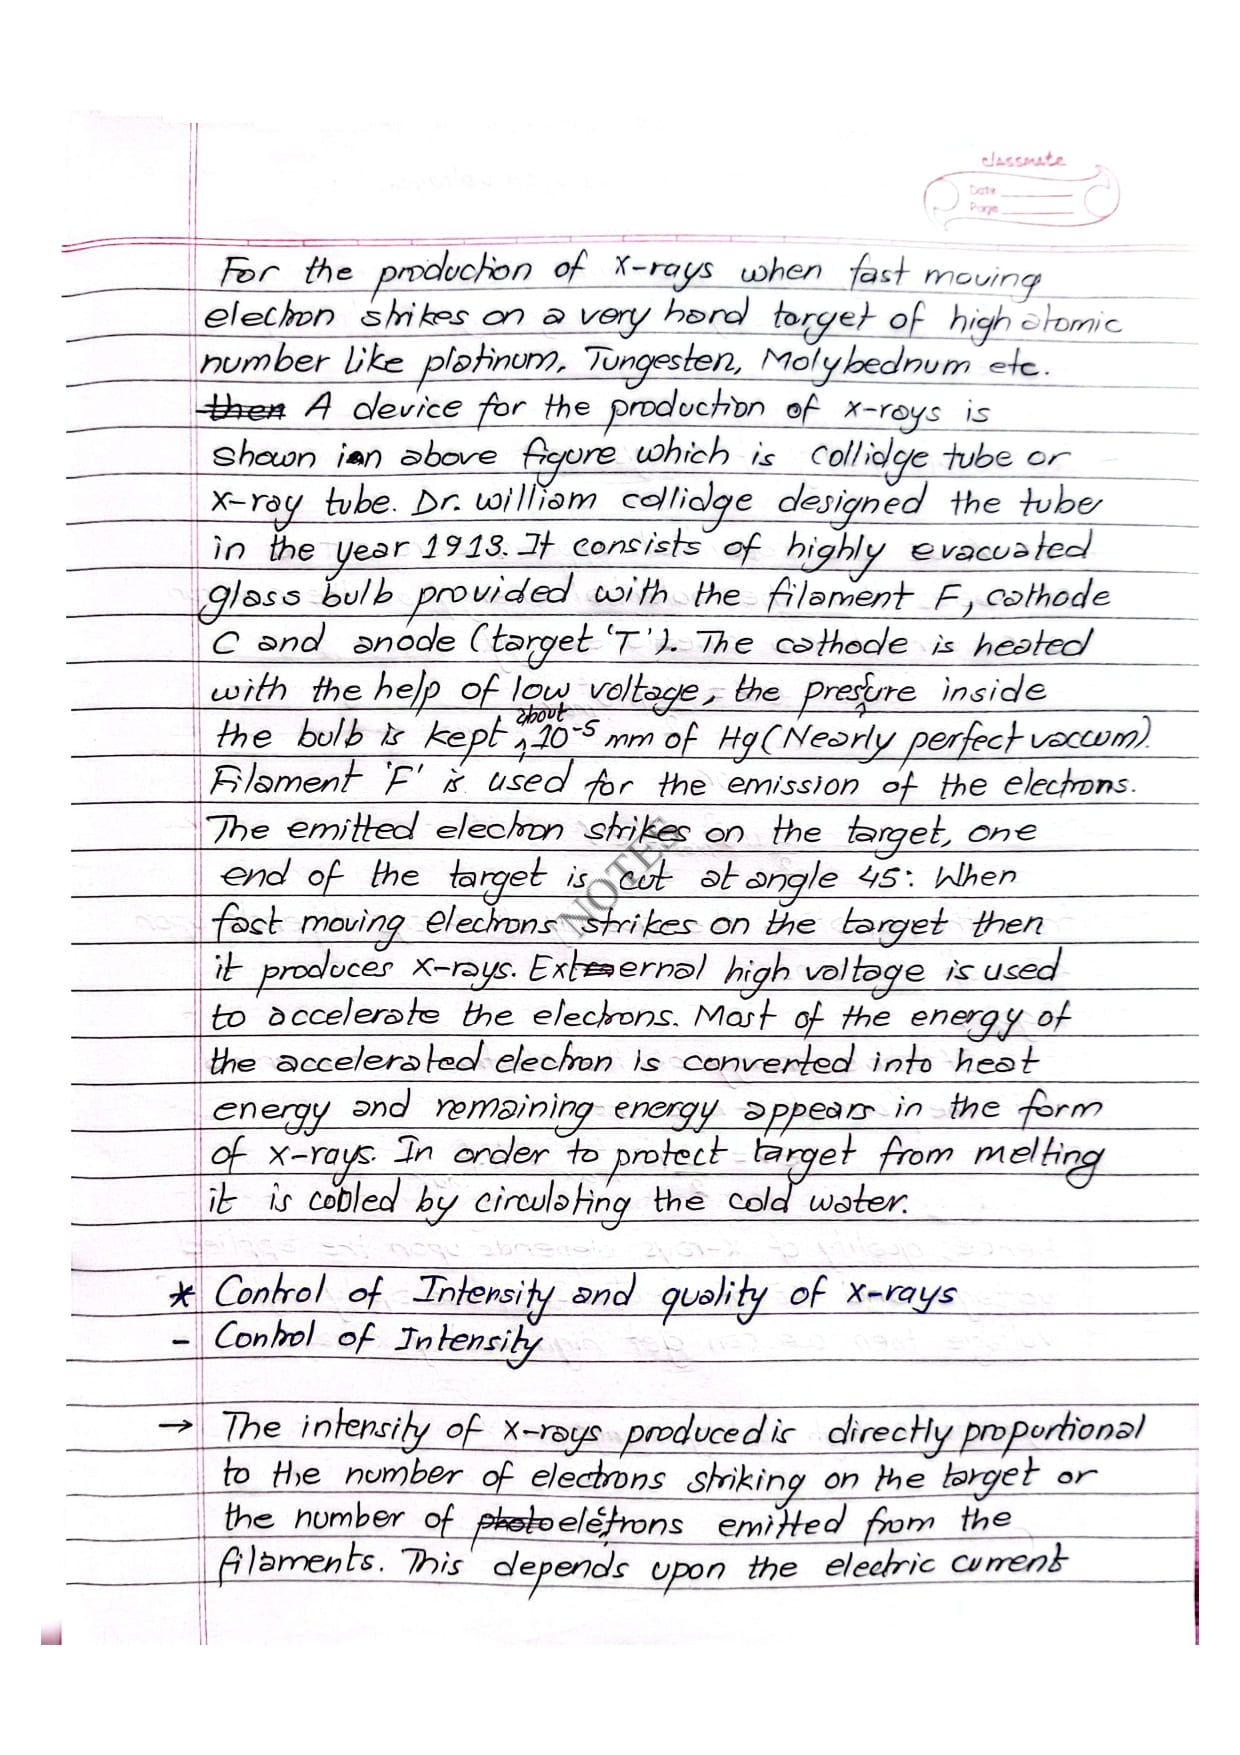 classmate
Date
Page
For the production of x-rays when fast moving
electron strikes on a very hard target of high atomic
number like platinum, Tungesten, Molybednum etc.
then A device for the production of x-rays is
shown in above figure which is collidge tube or
x-ray tube. Dr. william collidge designed the tube
in the year 1913. It consists of highly evacuated
glass bulb provided with the filament F, cathode
C and anode (target 'T'). The cathode is heated
with the help of low voltage, the pressure inside
the bulb is kept about 10-5 mm of Hg (Nearly perfect vaccum).
Filament 'F' is used for the emission of the electrons.
The emitted electron strikes on the target, one
end of the target is cut at angle 45°. When
fast moving electrons strikes on the target then
it produces x-rays. External high voltage is used
to accelerate the electrons. Most of the energy of
the accelerated electron is converted into heat
energy and remaining energy appears in the form
of x-rays. In order to protect target from melting
it is cooled by circulating the cold water.
* Control of Intensity and quality of x-rays
- Control of Intensity
→ The intensity of x-rays produced is directly proportional
to the number of electrons striking on the target or
the number of photo electrons emitted from the
filaments. This depends upon the electric current
NOTES